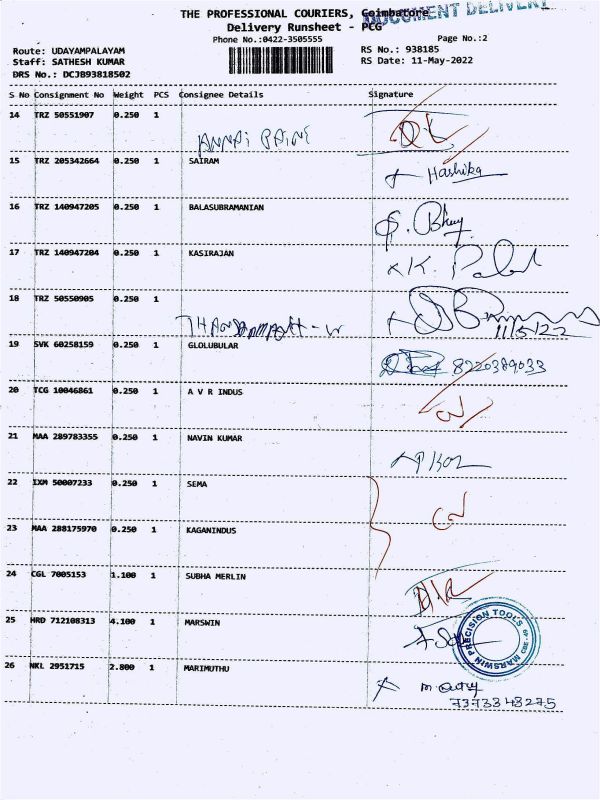 THE PROFESSIONAL COURIERS, Coimbatore
DOCUMENT DELIVERY
Delivery Runsheet - PCG
Phone No.:0422-3505555
Page No.:2
Route: UDAYAMPALAYAM
RS No.: 938185
Staff: SATHESH KUMAR
RS Date: 11-May-2022
DRS No.: DCJB93818502
S No Consignment No Weight PCS Consignee Details Signature
14 TRZ 50551907 0.250 1
ANNAI PAINT
15 TRZ 205342664 0.250 1 SAIRAM
Hashika
16 TRZ 140947205 0.250 1 BALASUBRAMANIAN
17 TRZ 140947204 0.250 1 KASIRAJAN
18 TRZ 50550905 0.250 1
11/5/22
19 SVK 60258159 0.250 1 GLOLUBULAR
8220389033
20 TCG 10046861 0.250 1 A V R INDUS
21 MAA 289783355 0.250 1 NAVIN KUMAR
22 IXM 50007233 0.250 1 SEMA
23 MAA 288175970 0.250 1 KAGANINDUS
24 CGL 7005153 1.100 1 SUBHA MERLIN
25 HRD 712108313 4.100 1 MARSWIN
MARSWIN PRECISION TOOLS
26 NKL 2951715 2.800 1 MARIMUTHU
7373343275